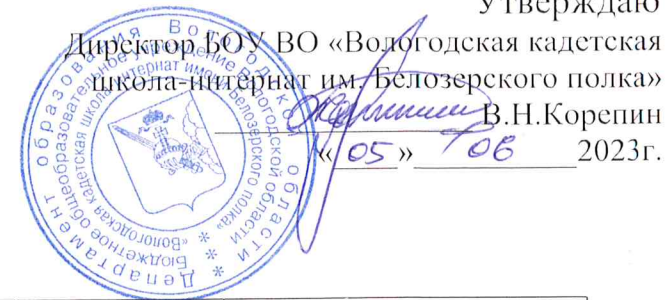 Утверждаю
Директор БОУ ВО «Вологодская кадетская
школа-интернат им. Белозерского полка»
В.Н.Корепин
«05» 06 2023г.
* Департамент образования Вологодской области
* Бюджетное общеобразовательное учреждение Вологодской области *
«Вологодская кадетская школа-интернат имени Белозерского полка»